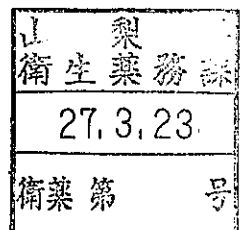 山梨
衛生薬務課
27.3.23
衛薬第 号